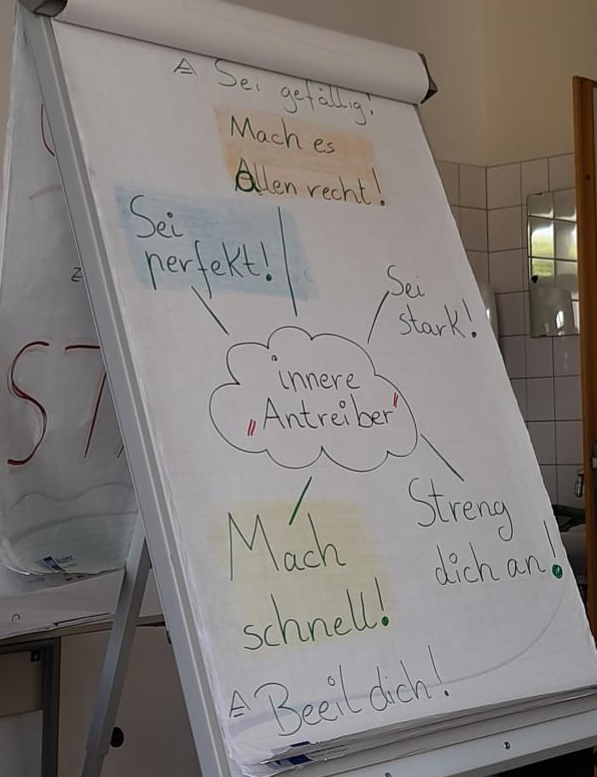 ≙ Sei gefällig!
Mach es
Allen recht!
Sei
perfekt!
Sei
stark!
innere
"Antreiber"
Streng
dich an!
Mach
schnell!
≙ Beeil dich!